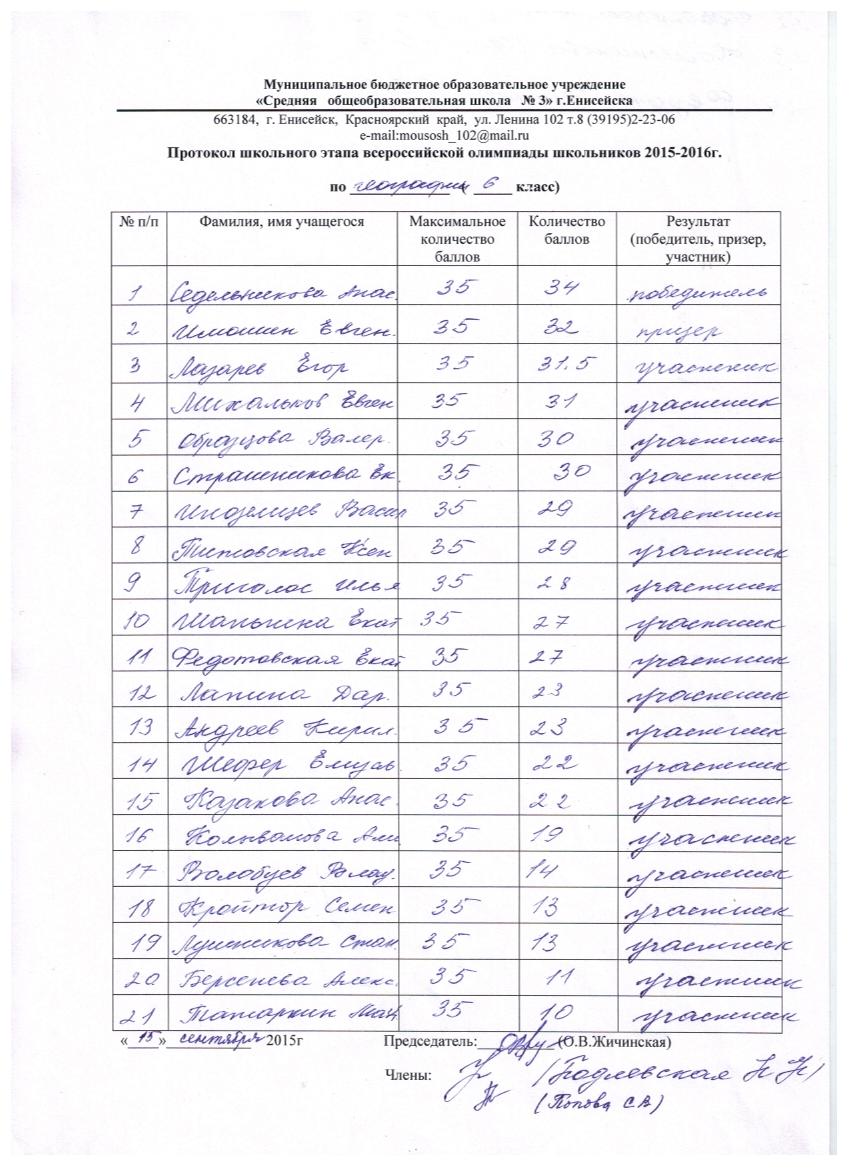 Муниципальное бюджетное образовательное учреждение
«Средняя общеобразовательная школа № 3» г.Енисейска
663184, г. Енисейск, Красноярский край, ул. Ленина 102 т.8 (39195)2-23-06
e-mail:mousosh_102@mail.ru
Протокол школьного этапа всероссийской олимпиады школьников 2015-2016г.
по географии ( 6 класс)
№ п/п Фамилия, имя учащегося Максимальное количество баллов Количество баллов Результат (победитель, призер, участник)
1 Седельникова Анас. 35 34 победитель
2 Имошин Евген. 35 32 призер
3 Лазарев Егор 35 31.5 участник
4 Михальков Евген 35 31 участник
5 Образцова Валер. 35 30 участник
6 Страшникова Ек. 35 30 участник
7 Иноземцев Васил 35 29 участник
8 Титовская Ксен 35 29 участник
9 Триголос Илья 35 28 участник
10 Шаньгина Екат 35 27 участник
11 Федотовская Екат 35 27 участник
12 Лапина Дар. 35 23 участник
13 Андреев Кирил. 35 23 участник
14 Шефер Елизав. 35 22 участник
15 Казакова Анас. 35 22 участник
16 35 19 участник
17 Волобуев 35 14 участник
18 Кройтор Семен 35 13 участник
19 35 13 участник
20 Берсенева Алекс. 35 11 участник
21 Татаркин 35 10 участник
« 15 » сентября 2015г Председатель: (О.В.Жичинская)
Члены: (Подлевская Н Н)
(Попова С В)